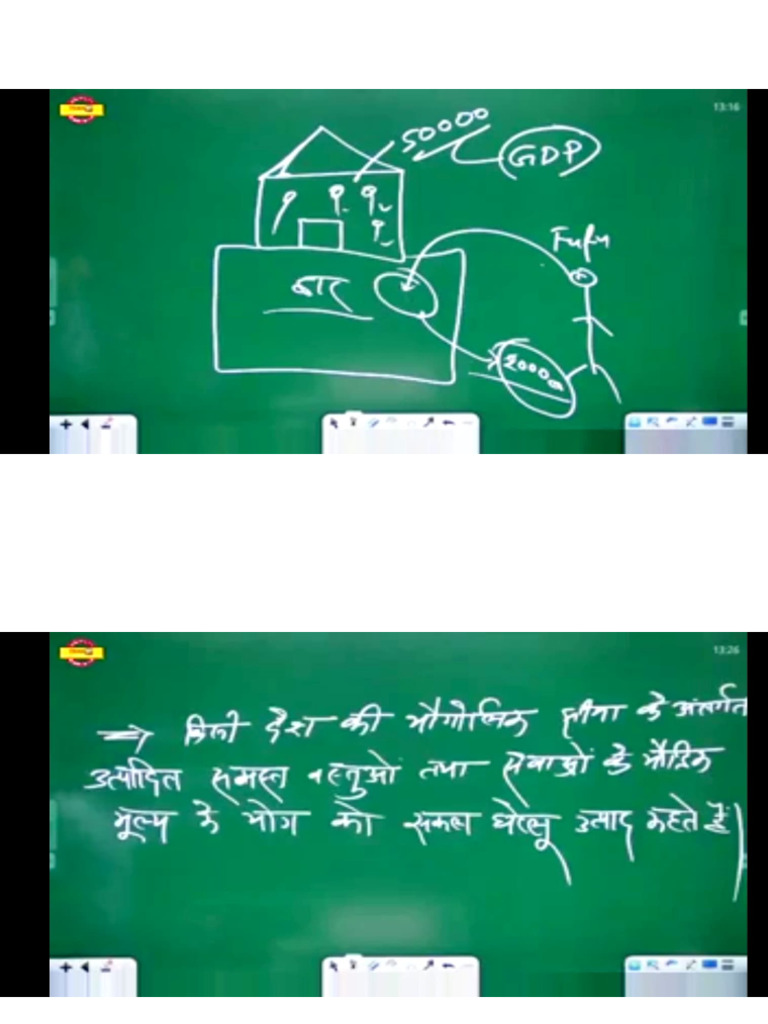 13:16
50000
GDP
Fufu
20000
13:26
⇒ किसी देश की भौगोलिक सीमा के अंतर्गत
उत्पादित समस्त वस्तुओं तथा सेवाओं के मौद्रिक
मूल्य के योग को सकल घरेलू उत्पाद कहते हैं|